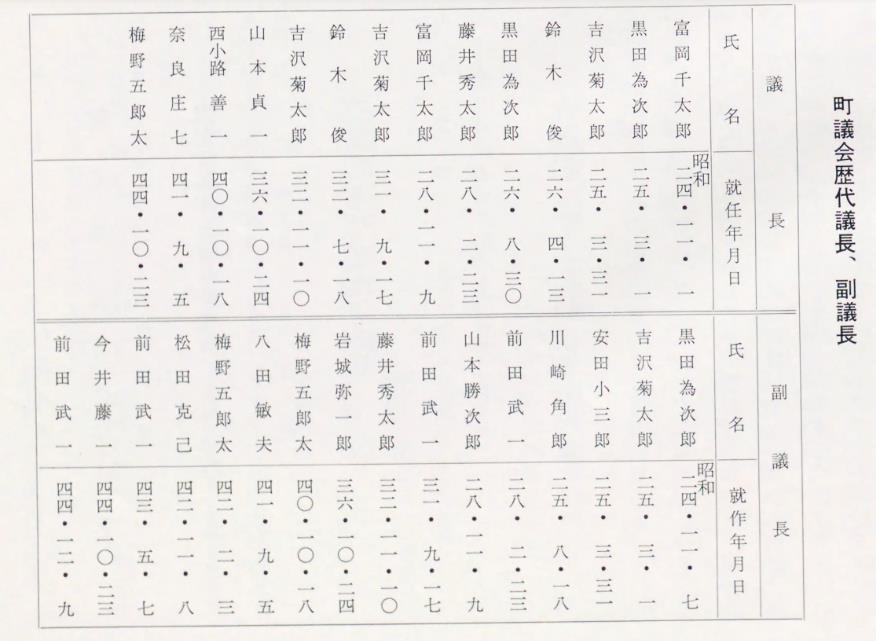 町議会歴代議長、副議長
議長
氏名 就任年月日
富岡千太郎 昭和二四・一一・一
黒田為次郎 二五・三・一
吉沢菊太郎 二五・三・三一
鈴木俊 二六・四・一三
黒田為次郎 二六・八・三〇
藤井秀太郎 二八・二・二三
富岡千太郎 二八・一一・九
吉沢菊太郎 三一・九・一七
鈴木俊 三二・七・一八
吉沢菊太郎 三二・一一・一〇
山本貞一 三六・一〇・二四
西小路善一 四〇・一〇・一八
奈良庄七 四一・九・五
梅野五郎太 四四・一〇・二三
副議長
氏名 就作年月日
黒田為次郎 昭和二四・一一・七
吉沢菊太郎 二五・三・一
安田小三郎 二五・三・三一
川崎角郎 二五・八・一八
前田武一 二八・二・二三
山本勝次郎 二八・一一・九
前田武一 三一・九・一七
藤井秀太郎 三二・一一・一〇
岩城弥一郎 三六・一〇・二四
梅野五郎太 四〇・一〇・一八
八田敏夫 四一・九・五
梅野五郎太 四二・二・三
松田克己 四二・一一・八
前田武一 四三・五・七
今井藤一 四四・一〇・二三
前田武一 四四・一二・九